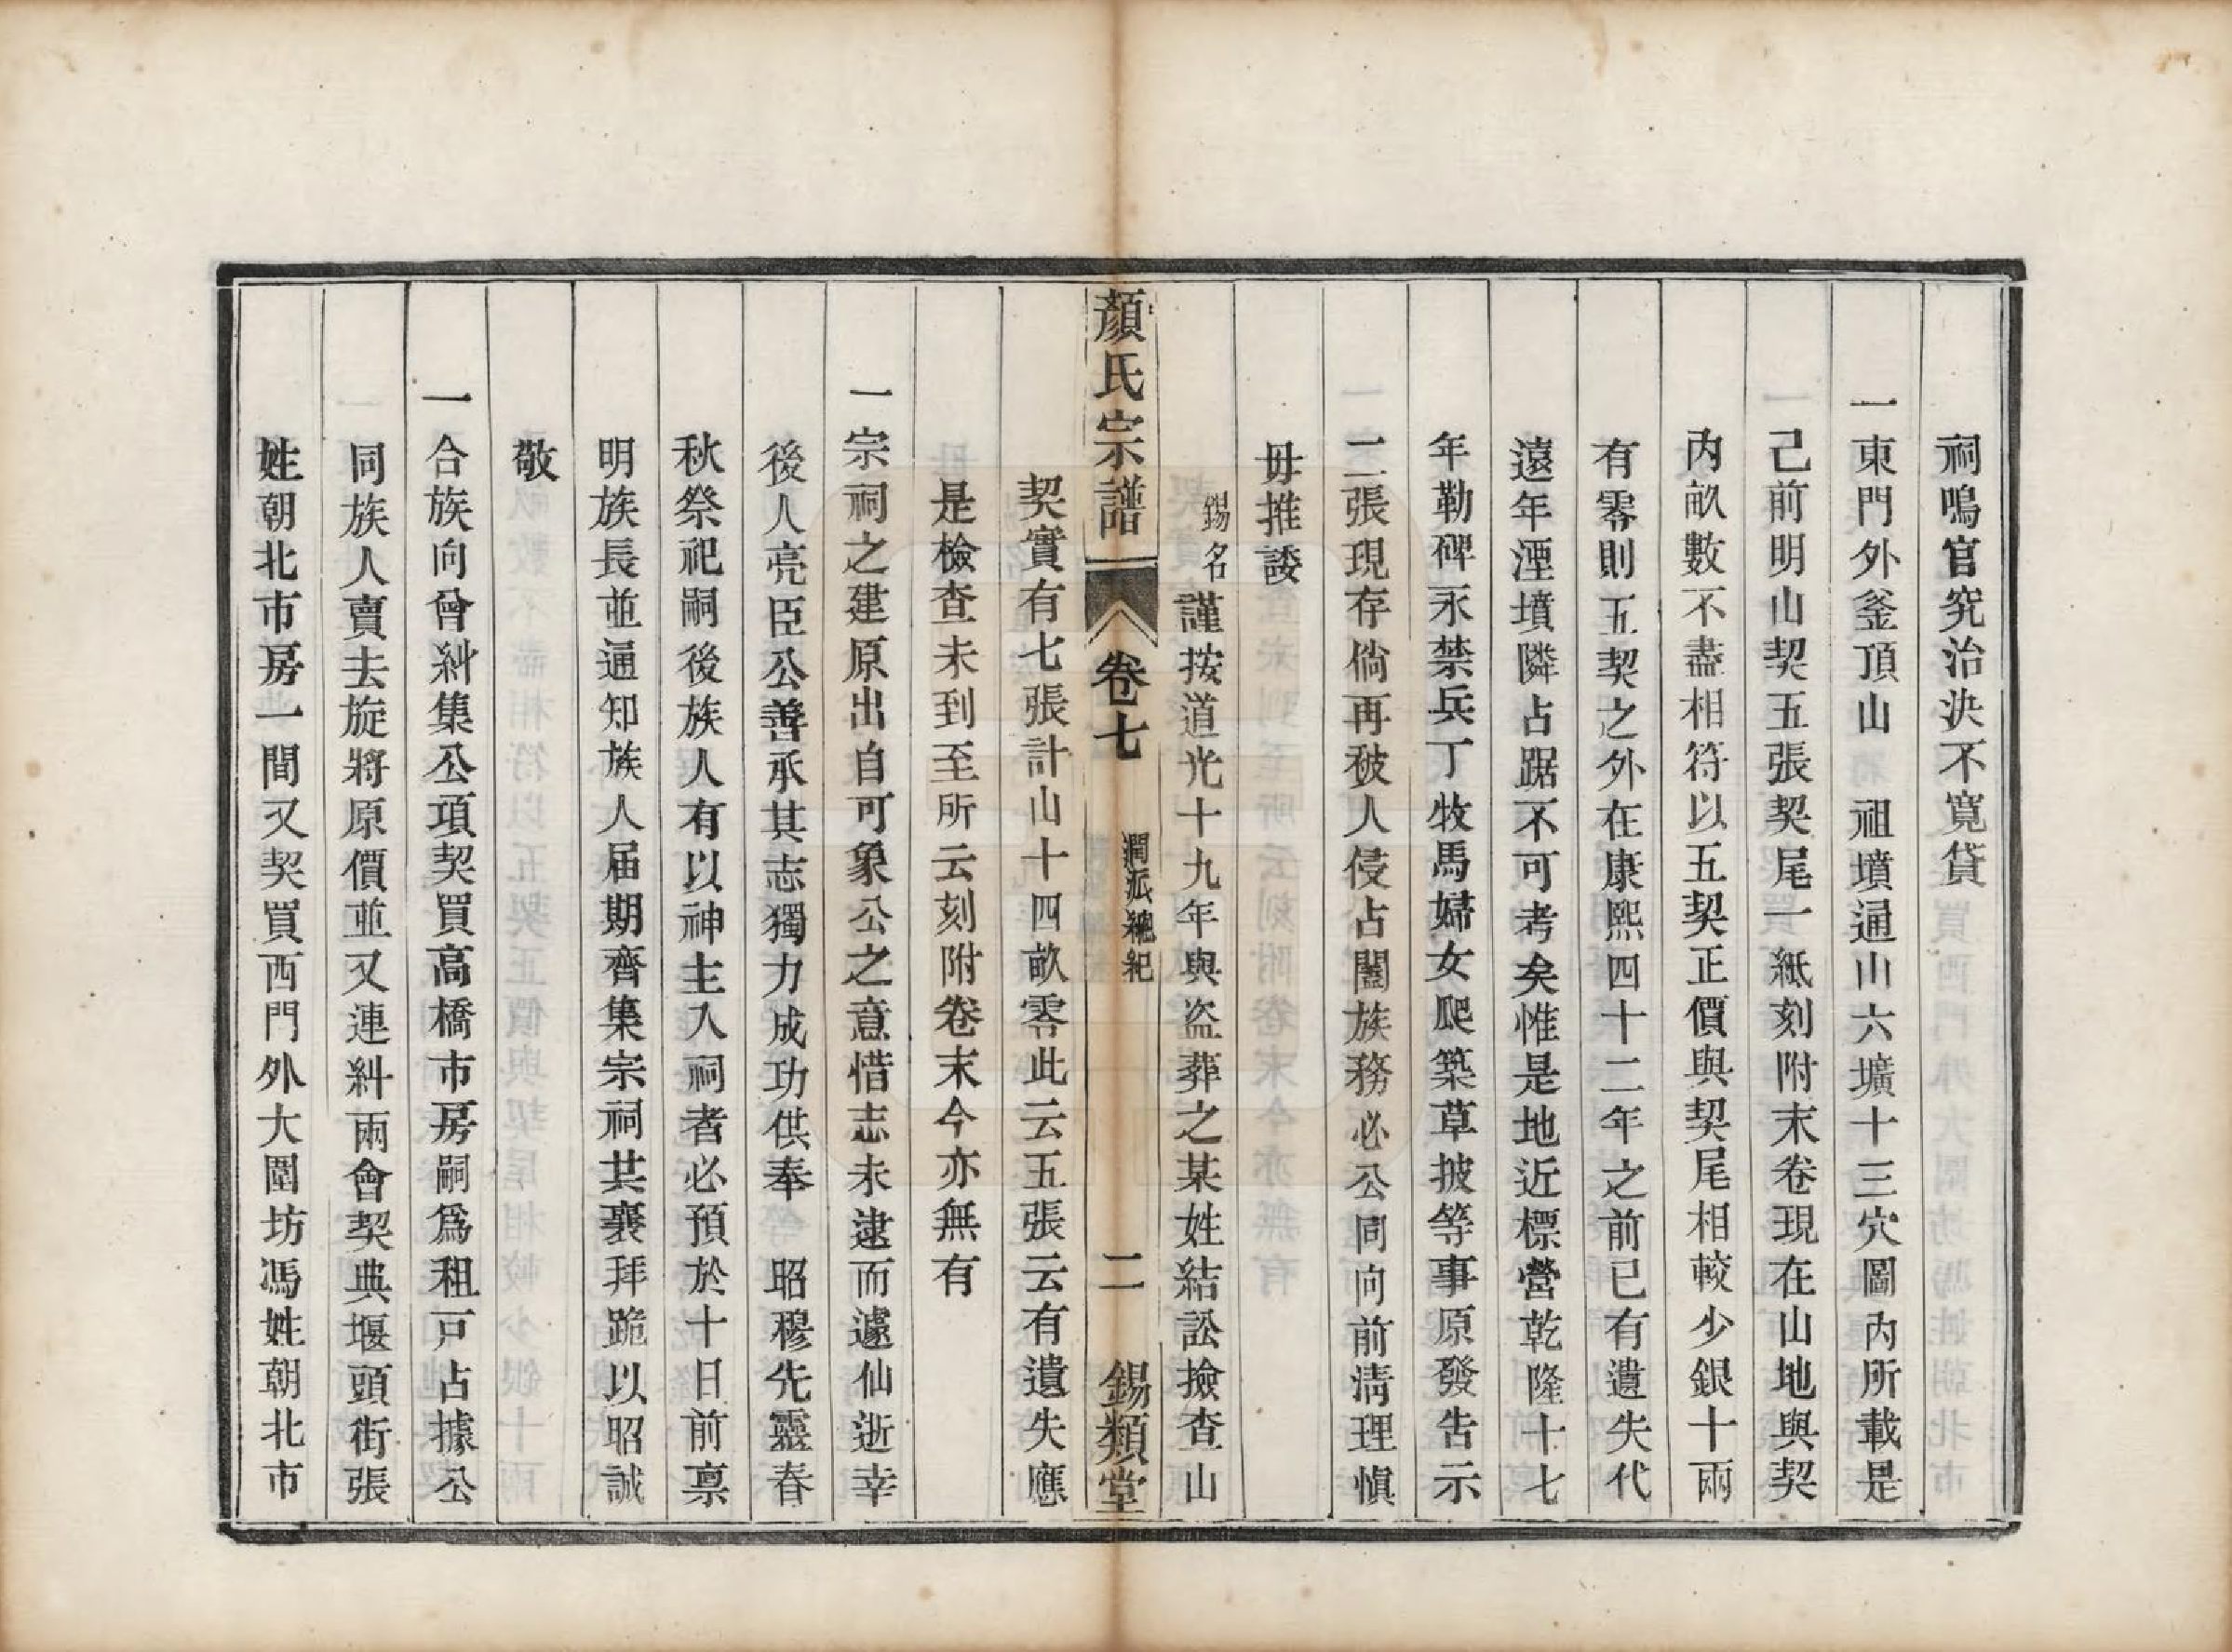 祠鳴官究治決不寬貸
一東門外釜頂山　祖墳通山六壙十三穴圖內所載是
己前明山契五張契尾一紙刻附末卷現在山地與契
內畝數不盡相符以五契正價與契尾相較少銀十兩
有零則五契之外在康熙四十二年之前已有遺失代
遠年湮墳隣占踞不可考矣惟是地近標營乾隆十七
年勒碑永禁兵丁牧馬婦女爬築草披等事原發告示
二張現存倘再被人侵占闔族務必公同向前清理愼
毋推諉
錫名謹按道光十九年與盜葬之某姓結訟撿查山
顏氏宗譜　卷七　潤派總紀　二　錫類堂
契實有七張計山十四畝零此云五張云有遺失應
是檢查未到至所云刻附卷末今亦無有
一宗祠之建原出自可象公之意惜志未逮而遽仙逝幸
後人亮臣公善承其志獨力成功供奉　昭穆先靈春
秋祭祀嗣後族人有以神主入祠者必預於十日前禀
明族長並通知族人届期齊集宗祠共襄拜跪以昭誠
敬
一合族向曾糾集公項契買高橋市房嗣爲租戸占據公
同族人賣去旋將原價並又連糾兩會契典堰頭街張
姓朝北市房一間又契買西門外大圍坊馮姓朝北市